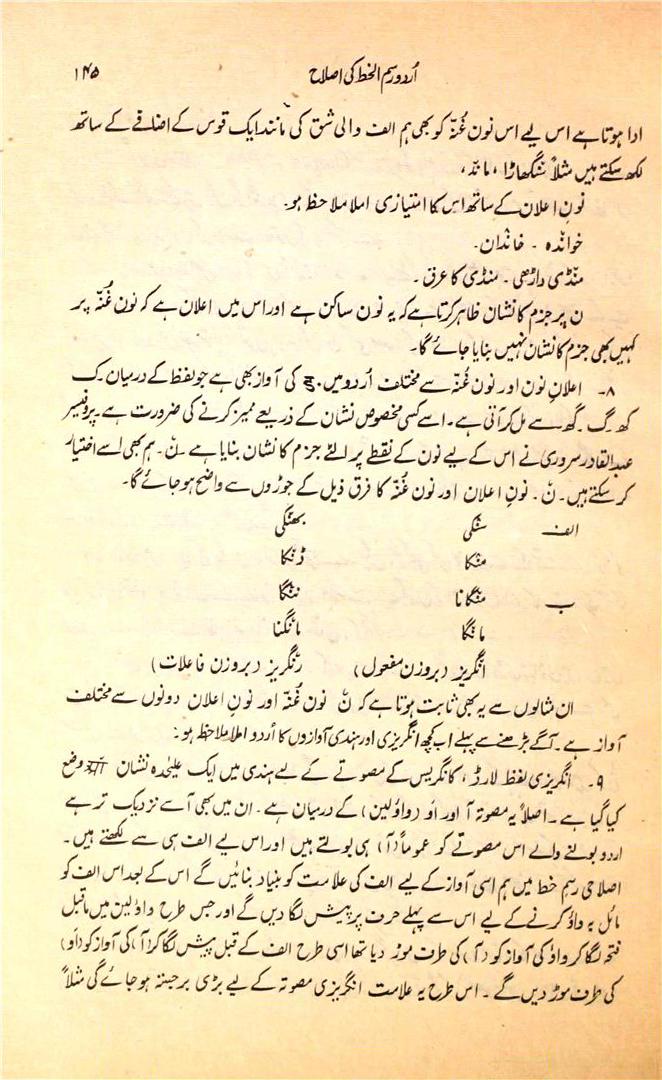 اُردو رسم الخط کی اصلاح
۱۴۵
ادا ہوتا ہے اس لیے اس نون غُنّہ کو بھی ہم الف والی شق کی مانند ایک قوس کے اضافے کے ساتھ
لکھ سکتے ہیں مثلاً سنگھاڑا، ماند،
نونِ اعلان کے ساتھ اس کا امتیازی املا ملاحظہ ہو۔
خواندہ ۔ خاندان۔
منڈی داڑھی ۔ منڈی کا عرق ۔
ن پر جزم کا نشان ظاہر کرتا ہے کہ یہ نون ساکن ہے اور اس میں اعلان ہے کہ نون غُنّہ پر
کہیں بھی جزم کا نشان نہیں بنایا جائے گا۔
۸۔ اعلانِ نون اور نون غُنّہ سے مختلف اُردو میں ङ کی آواز بھی ہے جو لفظ کے درمیان ک
کھ ۔ گ ۔ گھ سے مل کر آتی ہے۔ اسے کسی مخصوص نشان کے ذریعے ممیز کرنے کی ضرورت ہے۔ پروفیسر
عبدالقادر سروری نے اس کے لیے نون کے نقطے پر الٹے جزم کا نشان بنایا ہے ۔ نٚ۔ ہم بھی اسے اختیار
کر سکتے ہیں۔ نٚ ۔ نونِ اعلان اور نون غُنّہ کا فرق ذیل کے جوڑوں سے واضح ہو جائے گا۔
الف سنکی بھنگی
منکا ڈنکا
ب منگانا ننگا
مانگا مانگنا
انگریز (بروزن مفعول) رنگریز (بروزن فاعلات)
ان مثالوں سے یہ بھی ثابت ہوتا ہے کہ نٚ نون غُنّہ اور نونِ اعلان دونوں سے مختلف
آواز ہے ۔ آگے بڑھنے سے پہلے اب کچھ انگریزی اور ہندی آوازوں کا اُردو املا ملاحظہ ہو :
۹۔ انگریزی لفظ لارڈ، کانگریس کے مصوتے کے لیے ہندی میں ایک علیٰحدہ نشان ऑ وضع
کیا گیا ہے ۔ اصلاً یہ مصوتہ آ اور اَو (واؤ لین) کے درمیان ہے ۔ ان میں بھی آ سے نزدیک تر ہے
اردو بولنے والے اس مصوتے کو عموماً (آ) ہی بولتے ہیں اور اس لیے الف ہی سے لکھتے ہیں۔
اصلاحی رسمِ خط میں ہم اسی آواز کے لیے الف کی علامت کو بنیاد بنائیں گے اس کے بعد اس الف کو
مائل بہ واؤ کرنے کے لیے اس سے پہلے حرف پر پیش لگا دیں گے اور جس طرح واؤ لین میں ماقبل
فتحہ لگا کر واؤ کی آواز کو (آ) کی طرف موڑ دیا تھا اسی طرح الف کے قبل پیش لگا کر (آ) کی آواز کو (اَو)
کی طرف موڑ دیں گے ۔ اس طرح یہ علامت انگریزی مصوتہ کے لیے بڑی برجستہ ہو جائے گی مثلاً